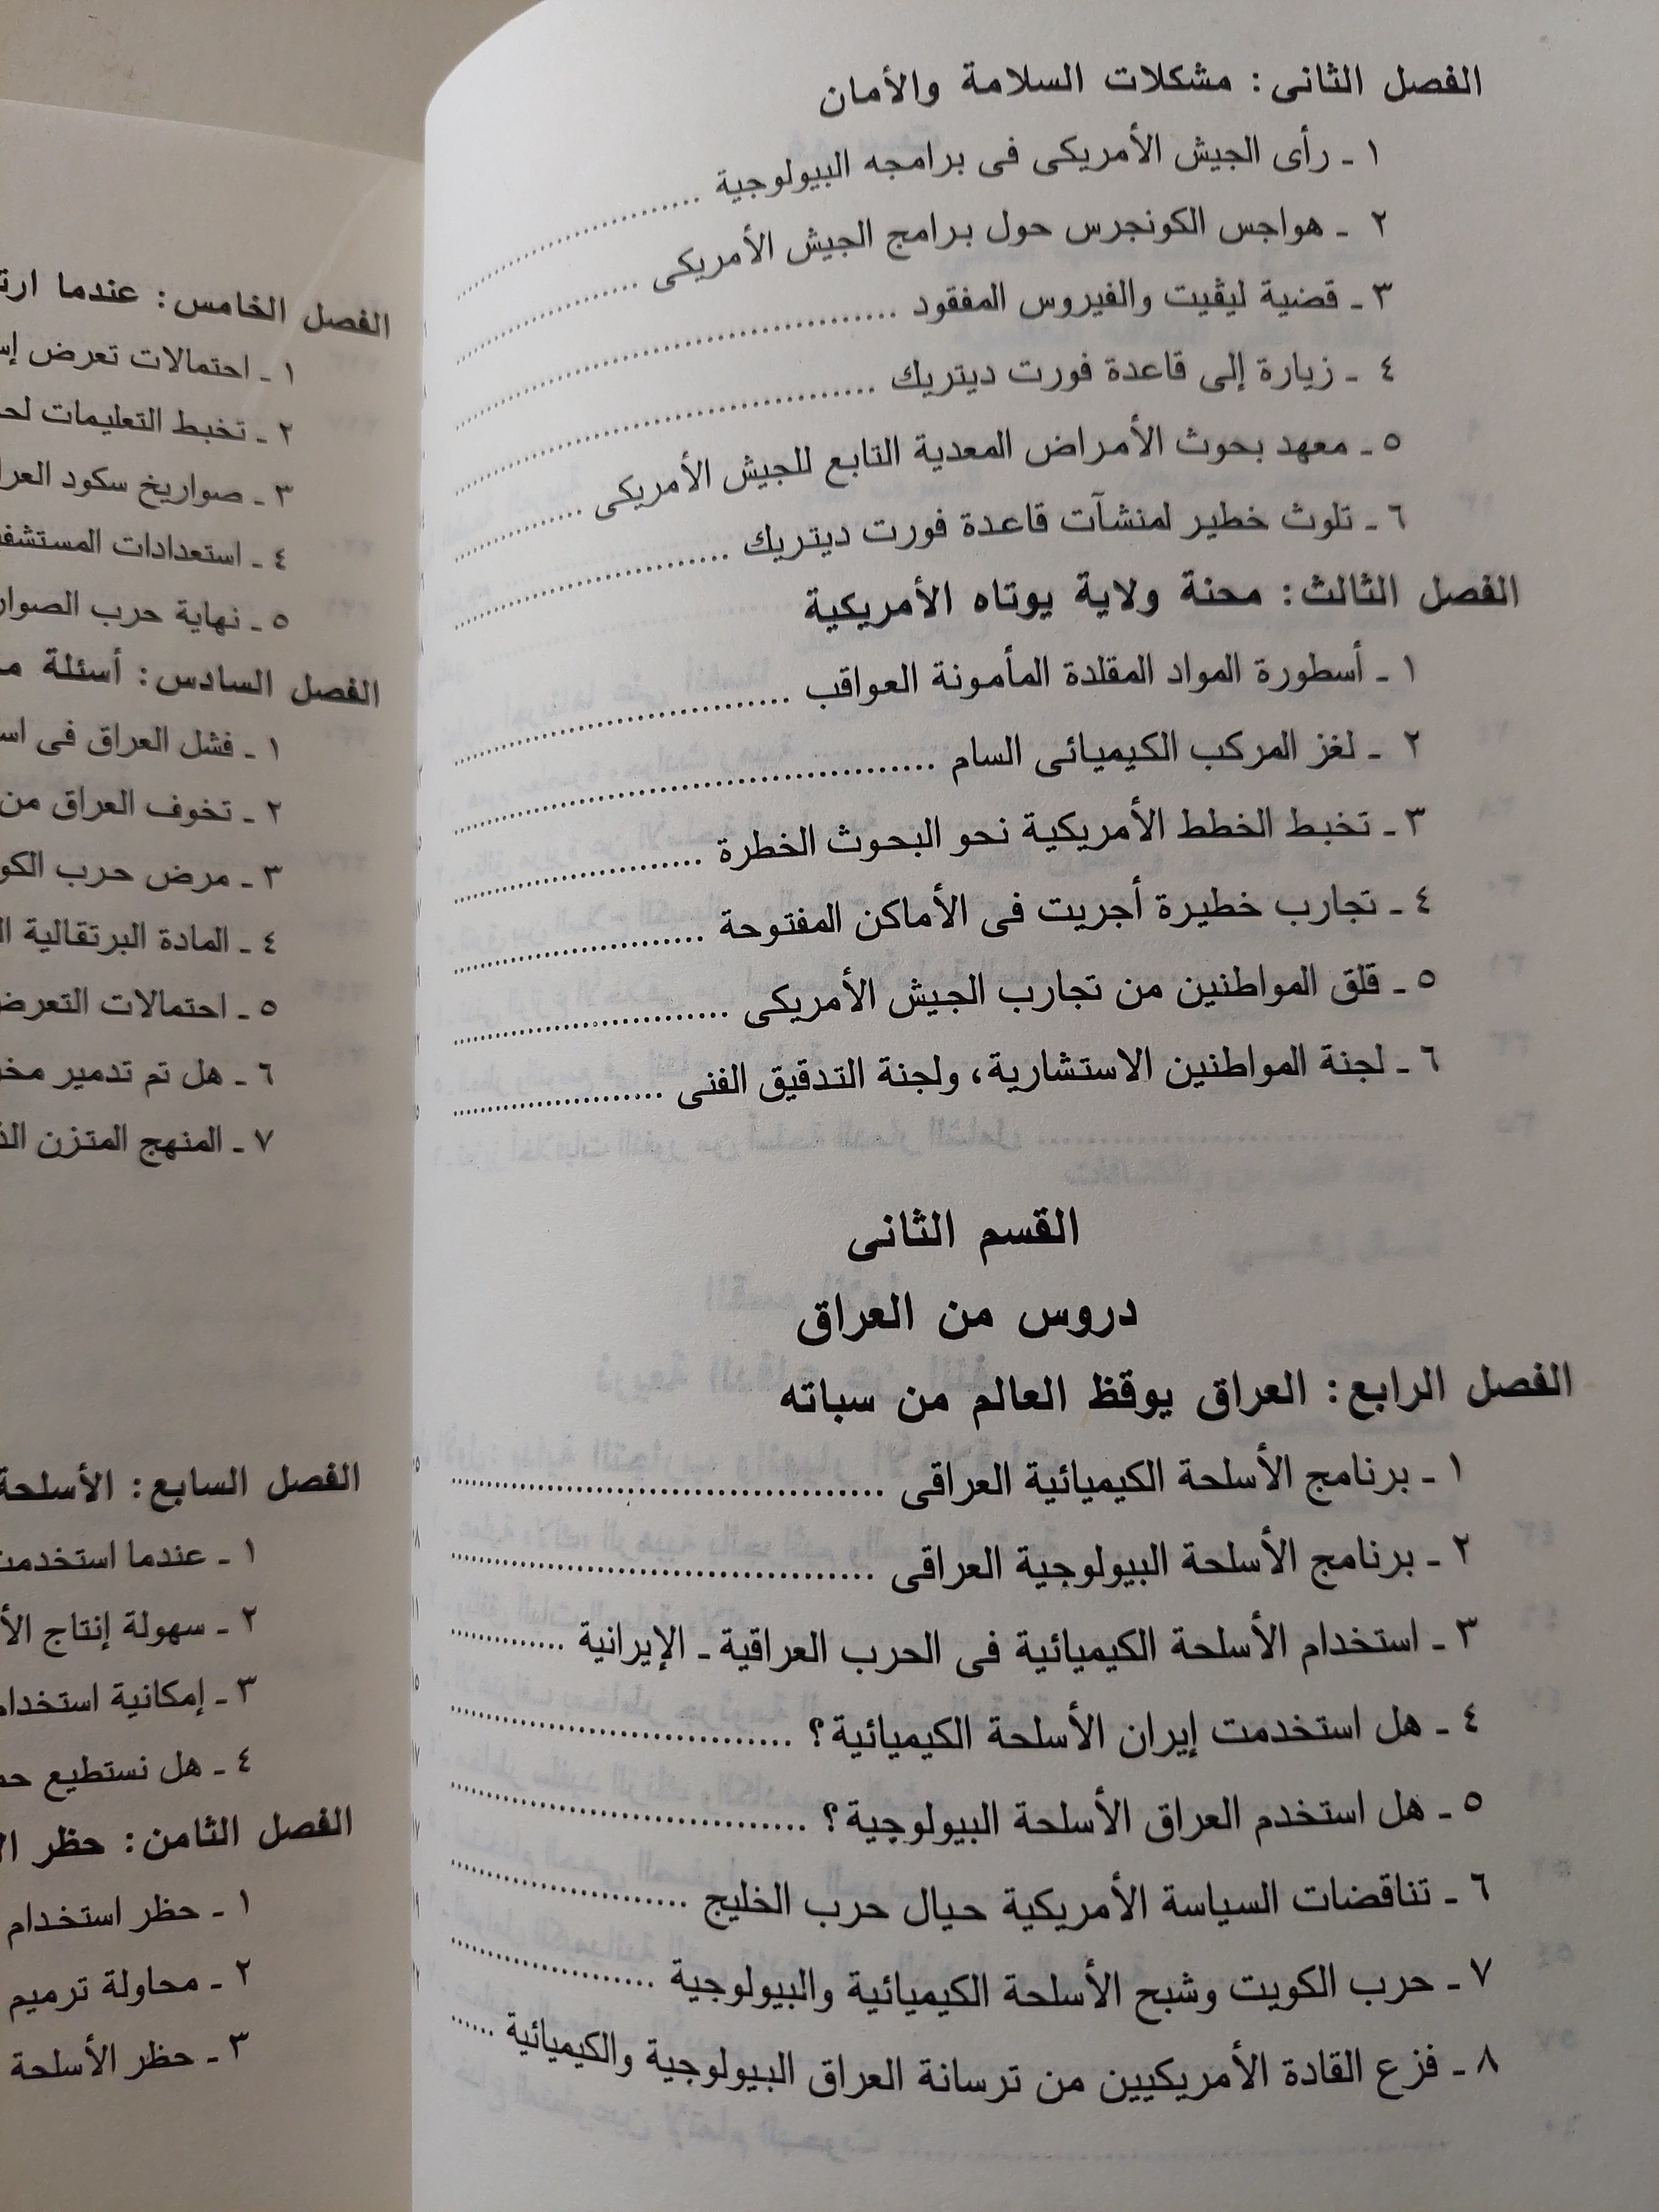 الفصل الثانى: مشكلات السلامة والأمان
١ ـ رأى الجيش الأمريكى فى برامجه البيولوجية
٢ ـ هواجس الكونجرس حول برامج الجيش الأمريكى
٣ ـ قضية ليڤيت والفيروس المفقود
٤ ـ زيارة إلى قاعدة فورت ديتريك
٥ ـ معهد بحوث الأمراض المعدية التابع للجيش الأمريكى
٦ ـ تلوث خطير لمنشآت قاعدة فورت ديتريك
الفصل الثالث: محنة ولاية يوتاه الأمريكية
١ ـ أسطورة المواد المقلدة المأمونة العواقب
٢ ـ لغز المركب الكيميائى السام
٣ ـ تخبط الخطط الأمريكية نحو البحوث الخطرة
٤ ـ تجارب خطيرة أجريت فى الأماكن المفتوحة
٥ ـ قلق المواطنين من تجارب الجيش الأمريكى
٦ ـ لجنة المواطنين الاستشارية، ولجنة التدقيق الفنى
القسم الثانى
دروس من العراق
الفصل الرابع: العراق يوقظ العالم من سباته
١ ـ برنامج الأسلحة الكيميائية العراقى
٢ ـ برنامج الأسلحة البيولوجية العراقى
٣ ـ استخدام الأسلحة الكيميائية فى الحرب العراقية ـ الإيرانية
٤ ـ هل استخدمت إيران الأسلحة الكيميائية؟
٥ ـ هل استخدم العراق الأسلحة البيولوجية؟
٦ ـ تناقضات السياسة الأمريكية حيال حرب الخليج
٧ ـ حرب الكويت وشبح الأسلحة الكيميائية والبيولوجية
٨ ـ فزع القادة الأمريكيين من ترسانة العراق البيولوجية والكيميائية
الفصل الخامس: عندما
١ ـ احتمالات تعرض
٢ ـ تخبط التعليمات
٣ ـ صواريخ سكود
٤ ـ استعدادات
٥ ـ نهاية حرب
الفصل السادس: أسئلة
١ ـ فشل العراق فى
٢ ـ تخوف العراق من
٣ ـ مرض حرب
٤ ـ المادة البرتقالية
٥ ـ احتمالات
٦ ـ هل تم تدمير
٧ ـ المنهج المتزن
الفصل السابع: الأسلحة
١ ـ عندما استخدمت
٢ ـ سهولة إنتاج
٣ ـ إمكانية
٤ ـ هل نستطيع
الفصل الثامن: حظر
١ ـ حظر استخدام
٢ ـ محاولة ترميم
٣ ـ حظر الأسلحة